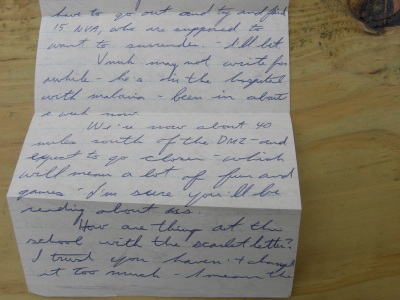 have to go out and try and find
15 NVA, who are supposed to
want to surrender. - I'll bet
may not write for
awhile - he's in the hospital
with malaria - been in about
a week now
We're now about 40
miles south of the DMZ - and
expect to go closer - which
will mean a lot of fun and
games - I'm sure you'll be
reading about us.
How are things at the
school with the scarlet letter?
I trust you haven't changed
it too much -